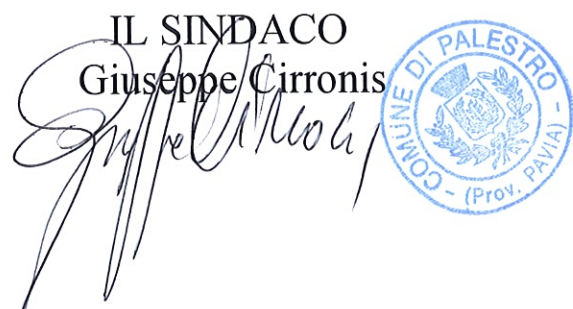 IL SINDACO
Giuseppe Cirronis
COMUNE DI PALESTRO - (Prov. PAVIA) -